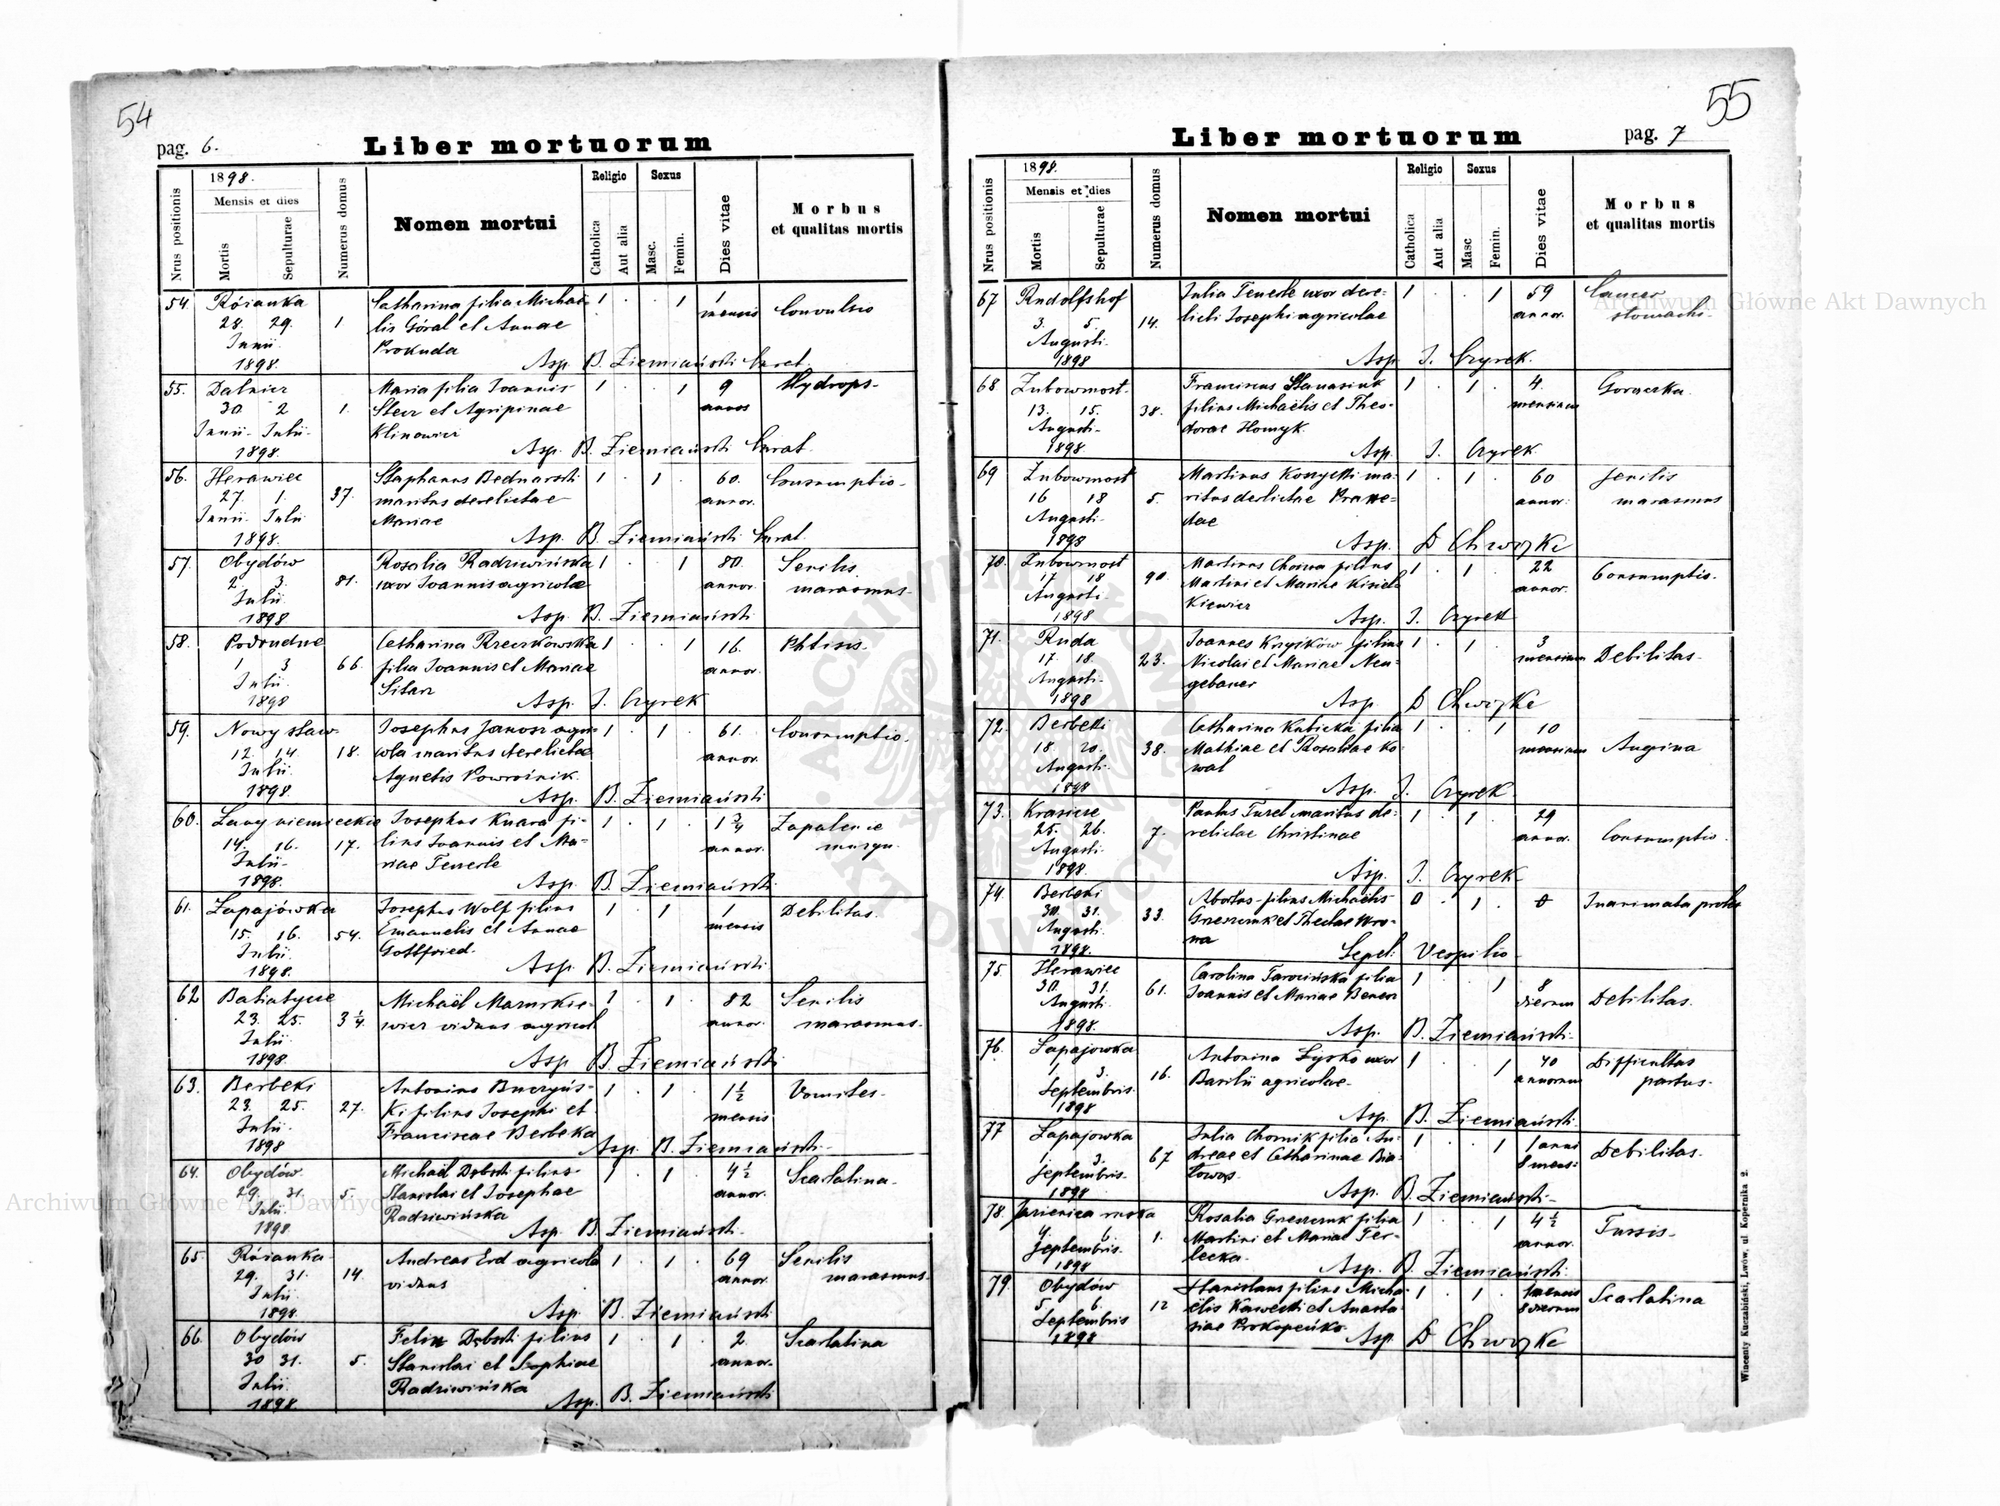 54
pag. 6.
Liber mortuorum
Nrus positionis
1898.
Mensis et dies
Mortis
Sepulturae
Numerus domus
Nomen mortui
Religio
Catholica
Aut alia
Sexus
Masc.
Femin.
Dies vitae
Morbus
et qualitas mortis
54. Róianka Catharina filia Michae- 1 . . 1 1 Convulsio
28. 29. 1 lis Góral et Annae mensis
Junii Prokuda
1898. Asp. B. Ziemiański Curat.
55. Dalnicz Maria filia Joannis 1 . . 1 9 Hydrops-
30. 2 1. Stecz et Agripinae annos
Junii- Julii- Klinowicz
1898. Asp. B. Ziemiański Curat.
56. Herawiec Stephanus Bednarski 1 . 1 . 60. Consumptio-
27. 1. 37. maritus derelictae annor.
Junii- Julii Mariae
1898. Asp. B. Ziemiański Curat.
57. Obydów Rosalia Radziwińska 1 . . 1 80. Senilis
2. 3. 81. uxor Joannis agricolae annor. marasmus-
Julii
1898 Asp. B. Ziemiański
58. Podrudne Catharina Rzeczkowska 1 . . 1 16. Phtisis-
1 3 66. filia Joannis et Mariae annor.
Julii- Sitarz
1898 Asp. J. Czyrek
59. Nowy staw Josephus Janosz agri- 1 . 1 . 61. Consumptio.
12. 14. 18. cola maritus derelictae annor.
Julii. Agnetis Powroźnik.
1898. Asp. B. Ziemiański
60. Lany niemieckie Josephus Knara fi- 1 . 1 . 1 3/4 Zapalenie
14. 16. 17. lius Joannis et Ma- annor. mózgu.
Julii- riae Tenerle
1898. Asp. B. Ziemiański
61. Lapajówka Josephus Wolf filius 1 . 1 . 1 Debilitas.
15. 16. 54. Emanuelis et Annae mensis
Julii. Gottfried.
1898. Asp. B. Ziemiański
62 Batiatycze Michaël Mazurkie- 1 . 1 . 82 Senilis
23. 25. 3 1/4. wicz viduus agricol annor. marasmus-
Julii
1898 Asp. B. Ziemiański
63. Berbeki Antonius Buczyńs- 1 . 1 . 1 1/2 Vomites-
23. 25. 27. ki filius Josephi et mensis
Julii- Franciscae Berbeka
1898 Asp. B. Ziemiański-
64. Obydów Michaël Dębski filius 1 . 1 . 4 1/2 Scarlatina-
29. 31. 5. Stanislai et Josephae annor.
Julii. Radziwińska
1898. Asp. B. Ziemiański-
65. Róianka Andreas Erd agricola 1 . 1 . 69 Senilis
29. 31. 14. viduus annor. marasmus-
Julii
1898. Asp. B. Ziemiański
66. Obydów Felix Dębski filius 1 . 1 . 2. Scarlatina
30 31. 5. Stanislai et Josephiae annor.
Julii. Radziwińska
1898. Asp. B. Ziemiański
55
Liber mortuorum
pag. 7
Nrus positionis
1898.
Mensis et dies
Mortis
Sepulturae
Numerus domus
Nomen mortui
Religio
Catholica
Aut alia
Sexus
Masc
Femin.
Dies vitae
Morbus
et qualitas mortis
67 Rudolfshof Julia Tenerle uxor dere- 1 . . 1 59 Cancer
3. 5. 14. licti Josephi agricolae annor. stomachi-
Augusti-
1898 Asp. J. Czyrek.
68. Zubowmost- Franciscus Stanasiuk 1 . 1 . 4. Gorączka.
13. 15. 38. filius Michaëlis et Theo- mensium
Augusti- dorae Homyk.
1898. Asp. J. Czyrek
69 Zubowmost Martinus Koszycki ma- 1 . 1 . 60 Senilis
16 18 5. ritus derlictae Praxe- annor. marasmus
Augusti- dae
1898 Asp. D Chwojke
70. Zubowmost Martinus Choina filius 1 . 1 . 22 Consumptio-
17 18 90. Martini et Mariae Kisiel- annor.
Augusti- Kiewicz
1898 Asp. J. Czyrek
71. Ruda Joannes Kryjków filius 1 . 1 . 3 Debilitas-
17 18. 23. Nicolai et Mariae Neu- mensium
Augusti- gebauer
1898 Asp. D Chwojke
72. Berbeki Catharina Kubicka filia 1 . . 1 10 Angina
18 20. 38. Mathiae et Rosaliae Ko- mensium
Augusti- wal
1898 Asp. J. Czyrek
73. Krasicze Paulus Turel maritus de- 1 . 1 . 29 Consumptio.
25. 26. 7. relictae Christinae annor.
Augusti-
1898. Asp. J. Czyrek
74. Berbeki Abortus- filius Michaëlis 0 . 1 . 0 Inanimata proles
30. 31. 33. Greszczuk et Theclae Wro-
Augusti- na
1898. Sepel: Vespilio-
75. Herawiec Carolina Tarocińska filia 1 . . 1 8 Debilitas.
30. 31. 61. Joannis et Mariae Benesz dierum
Augusti
1898 Asp. B. Ziemiański-
76. Lapajowka Antonina Łysko uxor 1 . . 1 40 Difficultas
1 3. 16. Basilii agricolae- annorum partus-
Septembris-
1898 Asp. B. Ziemiański.
77 Lapajowka Julia Chomik filia An- 1 . . 1 1 anni Debilitas-
1 3. 67 dreae et Catharinae Bia- 8 mens:
Septembris- łowąs
1898 Asp. B. Ziemiański-
78. Jazienica ruska Rosalia Greszczuk filia 1 . . 1 4 1/2 Tussis-
4. 6. 1. Martini et Mariae Ter- annor.
Septembris- lecka-
1898 Asp. B. Ziemiański.
79. Obydów Stanislaus filius Micha- 1 . 1 . 1 mensis Scarlatina
5. 6. 12 ëlis Kawecki et Anasta- 8 dierum
Septembris siae Prokopeńko
1898 Asp. D Chwojke
Wincenty Kuczabiński, Lwów, ul. Kopernika 2.
Archiwum Główne Akt Dawnych
Archiwum Główne Akt Dawnych